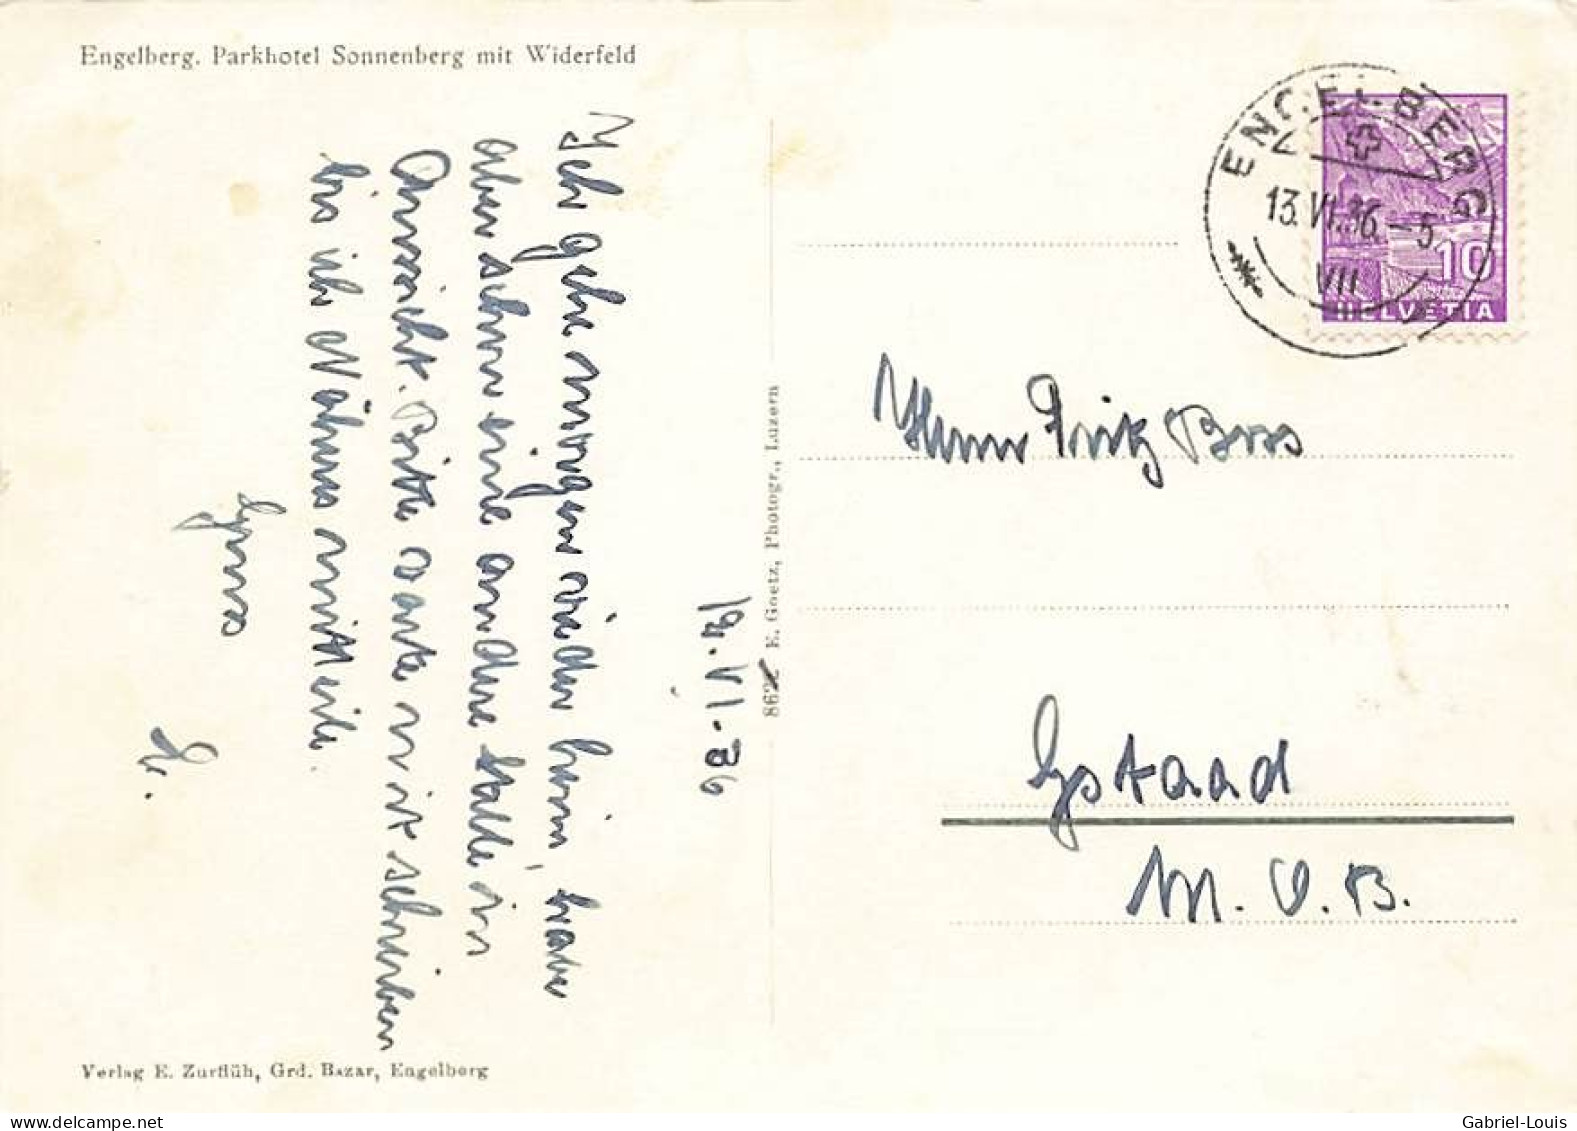 Engelberg. Parkhotel Sonnenberg mit Widerfeld
12.VI.36
Ich gehe morgen wieder heim, habe
aber schon eine andere Stelle in
Aussicht. Bitte warte mit schreiben
bis ich Näheres mitteile.
Gruss
H.
Verlag E. Zurflüh, Grd. Bazar, Engelberg
8622 E. Goetz, Photogr., Luzern
ENGELBERG
13.VI.36.–5
VII
10
HELVETIA
Herrn Fritz Boss
Gstaad
M.O.B.
Gabriel-Louis